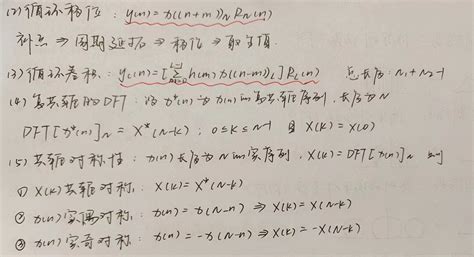 (2) 循环移位: y(n)=x((n+m))_N R_N(n)
补点 ⇒ 周期延拓 ⇒ 移位 ⇒ 取主值.
(3) 循环卷积: y_c(n)=[∑_{m=0}^{L-1} h(m) x((n-m))_L] R_L(n) 总长为: N₁+N₂-1
(4) 复共轭的DFT: 设 x*(n) 为 x(n) 的复共轭序列, 长度为N
DFT[x*(n)]_N = X*(N-k) ; 0≤k≤N-1 且 X(N)=X(0)
(5) 共轭对称性: x(n)长度为N的实序列, X(k)=DFT[x(n)]_N 则
① X(k)共轭对称: X(k)=X*(N-k)
② x(n)实偶对称: x(n)=x(N-n) ⇒ X(k)=X(N-k)
③ x(n)实奇对称: x(n)=-x(N-n) ⇒ X(k)=-X(N-k)